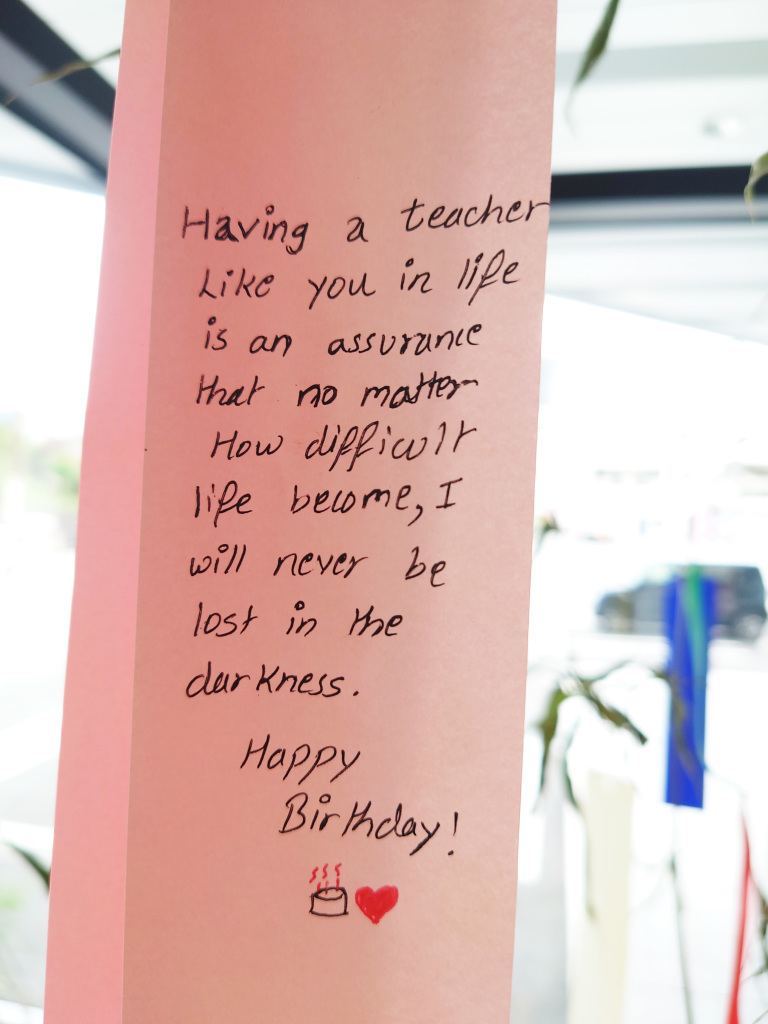 Having a teacher
Like you in life
is an assurance
that no matter
How difficult
life become, I
will never be
lost in the
darkness.
Happy
Birthday!